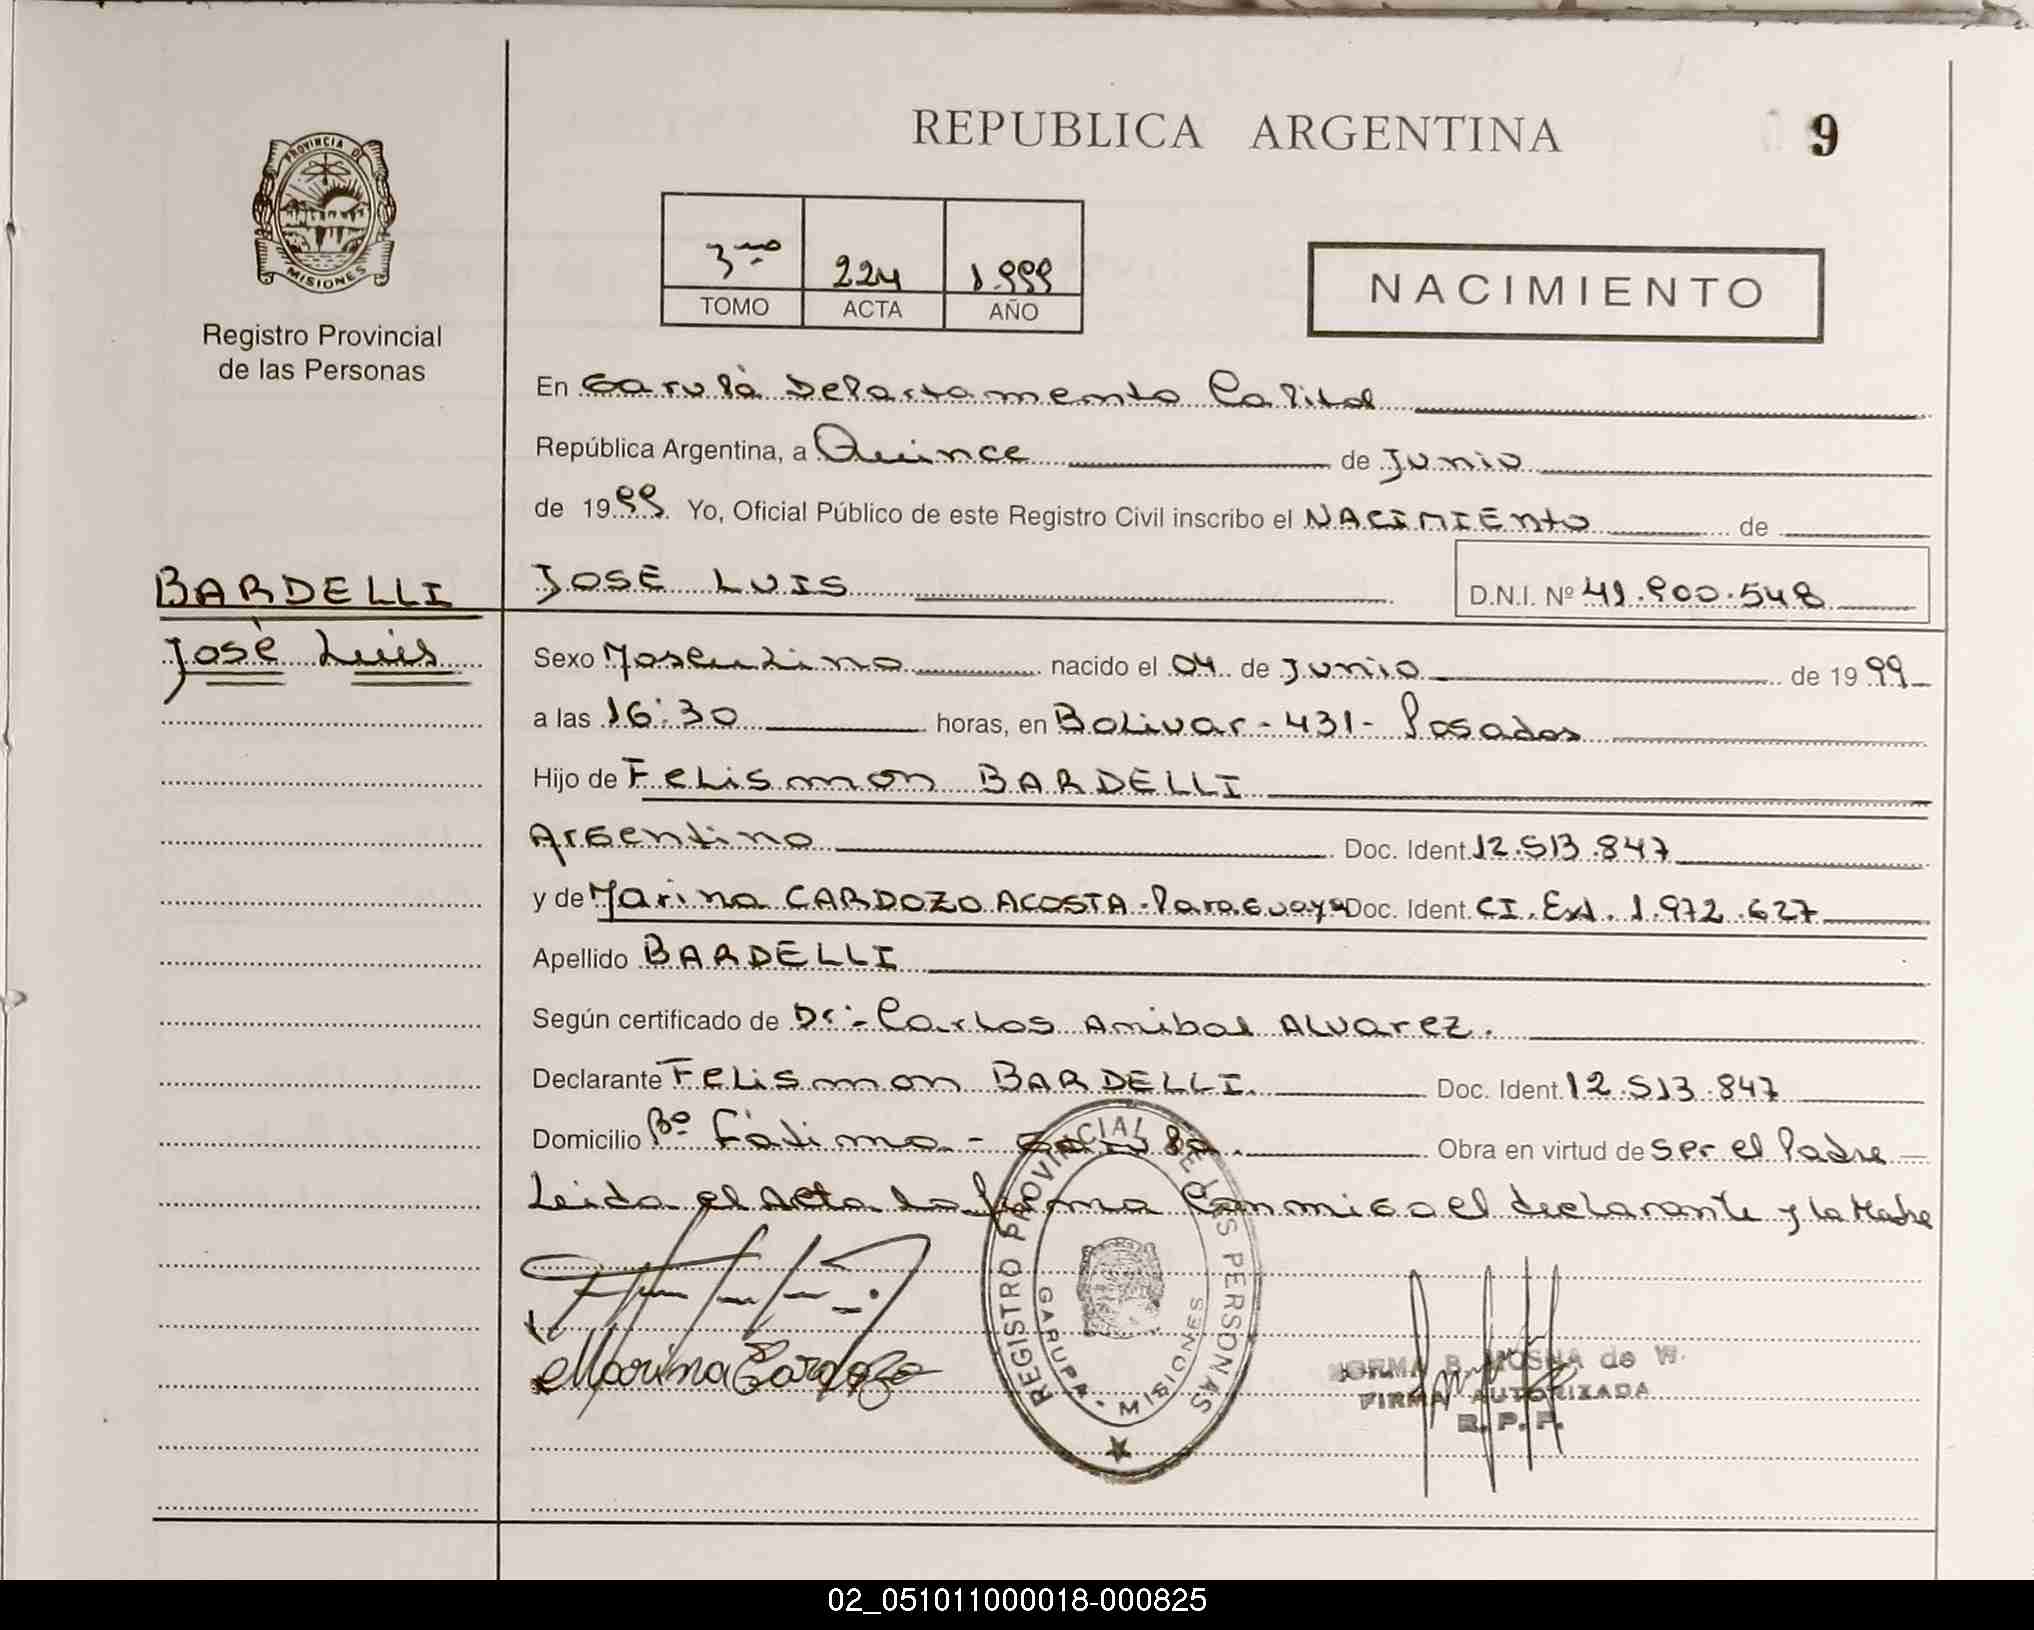 REPUBLICA ARGENTINA
9
PROVINCIA DE
MISIONES
Registro Provincial
de las Personas
3ro 224 1.999
TOMO ACTA AÑO
NACIMIENTO
En Garupá Departamento Capital
República Argentina, a Quince de Junio
de 1999 Yo, Oficial Público de este Registro Civil inscribo el NACIMIENto de
BARDELLI
José Luis
JOSE LUIS D.N.I. Nº 41.900.548
Sexo Masculino nacido el 04 de Junio de 1999
a las 16:30 horas, en Bolivar-431-Posadas
Hijo de Felismon BARDELLI
Argentino Doc. Ident. 12.513.847
y de Marina CARDOZO ACOSTA-Paraguaya Doc. Ident. CI. Ext. 1.972.627
Apellido BARDELLI
Según certificado de Dr:- Carlos Anibal Alvarez.
Declarante Felismon BARDELLI. Doc. Ident. 12.513.847
Domicilio Bº Fátima - Garupá. Obra en virtud de ser el Padre
Leida el Acta la firma Conmigo el declarante y la Madre
Marina Cardozo
REGISTRO PROVINCIAL DE LAS PERSONAS
GARUPA - MISIONES
NORMA B. MOSNA de W.
FIRMA AUTORIZADA
R. P. P.
02_051011000018-000825